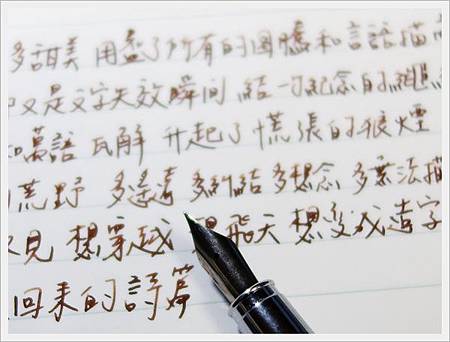 多甜美 用盡了所有的圖騰和言語描
又是文字失效瞬間 紀念的繩
和萬語 瓦解 升起了慌張的狼煙
荒野 多遙遠 多糾結 多想念 多無法描
不見 想穿越 飛天 想變成造字
回來的詩篇